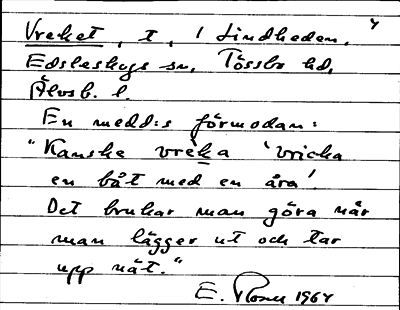 Vreket, t, i Lindheden,
Edsleskogs sn, Tössbo hd,
Älvsb. l.
En medd:s förmodan:
"Kanske vreka 'vricka
en båt med en åra'.
Det brukar man göra när
man lägger ut och tar
upp nät."
E. 1964